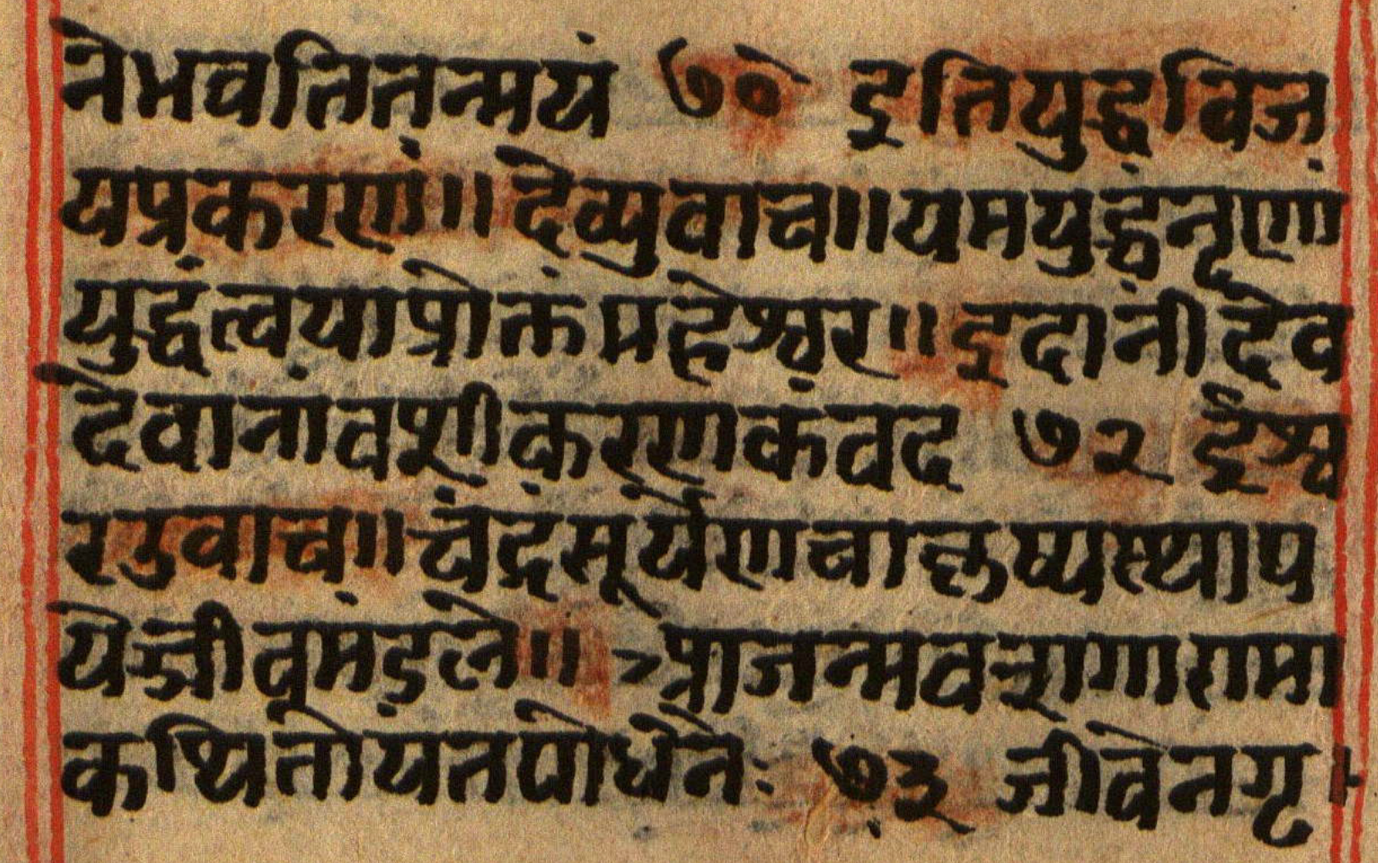 नेभवतितन्मयं ७० इतियुद्धविज
यप्रकरणं॥ देव्युवाच॥यमयुद्धंनृणा
युद्धंत्वयाप्रोक्तंमहेश्वर॥इदानींदेव
देवानांवशीकरणकंवद ७२ ईश्व
रउवाच॥चंद्रसूर्येणचाकृष्यस्थाप
येज्जीवमंडले॥ आजन्मवशगारामा
कथितोयतपोधनैः ७३ जीवेनगृ